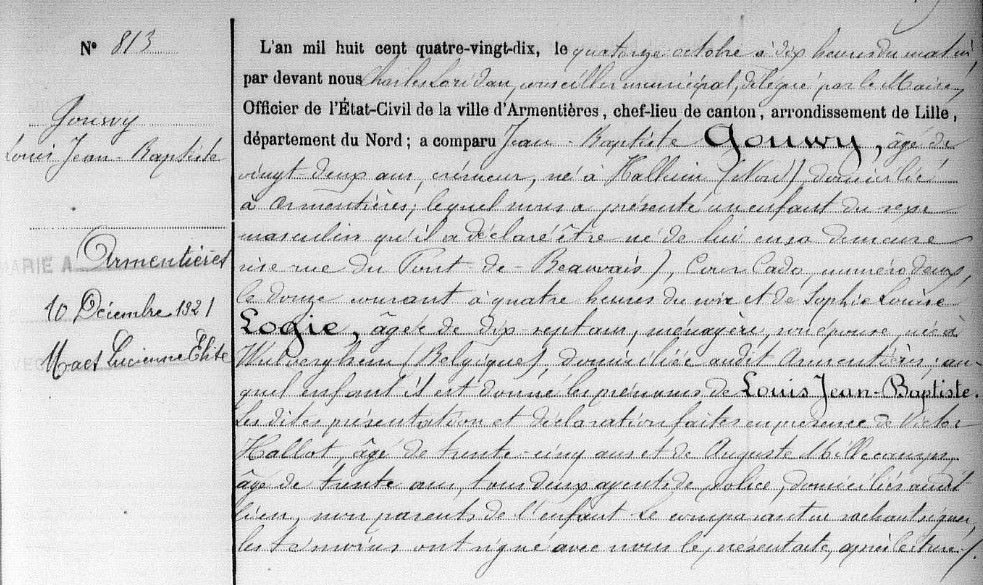 N° 813
Gouwy
Louis Jean-Baptiste
MARIE A Armentières
10 Décembre 1921
Maes Lucienne Elise
L'an mil huit cent quatre-vingt-dix, le quatorze octobre à dix heures du matin,
par devant nous Charles Loridan, conseiller municipal, délégué par le Maire,
Officier de l'État-Civil de la ville d'Armentières, chef-lieu de canton, arrondissement de Lille,
département du Nord; a comparu Jean-Baptiste Gouwy, âgé de
vingt-deux ans, crémeur, né à Halluin (Nord) domicilié
à Armentières; lequel nous a présenté un enfant du sexe
masculin qu'il a déclaré être né de lui en sa demeure
sise rue du Pont-de-Beauvais), Cour Cado, numéro deux,
le douze courant à quatre heures du soir et de Sophie Louise
Logie, âgée de dix sept ans, ménagère, son épouse née à
Wulverghem (Belgique) domiciliée audit Armentières; au-
quel enfant il est donné les prénoms de Louis Jean-Baptiste.
Les dites présentation et déclaration faites en présence de Victor
Hallot, âgé de trente-cinq ans et de Auguste Millecamps,
âgé de trente ans, tous deux agents de police, domiciliés audit
lieu, non parents de l'enfant. Le comparant ne sachant signer,
les témoins ont signé avec nous le présent acte, après lecture./.